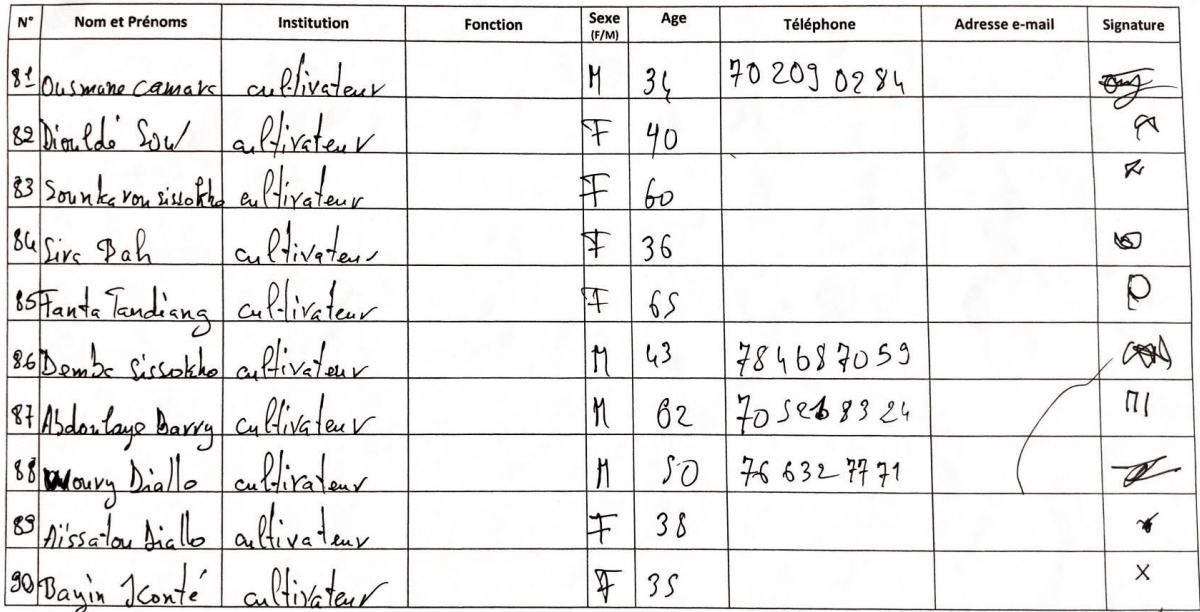 N° Nom et Prénoms Institution Fonction Sexe (F/M) Age Téléphone Adresse e-mail Signature
81 Ousmane Camara cultivateur M 34 70 209 02 84
82 Dioulde Sow cultivateur F 40
83 Sounkarou sissokho cultivateur F 60
84 Sira Bah cultivateur F 36
85 Fanta Tandiang cultivateur F 65
86 Demba Sissokho cultivateur M 43 784687059
87 Abdoulaye Barry cultivateur M 62
88 Moury Diallo cultivateur M 50 76 632 77 71
89 Aïssatou Diallo cultivateur F 38
90 Bayin cultivateur F 35 X